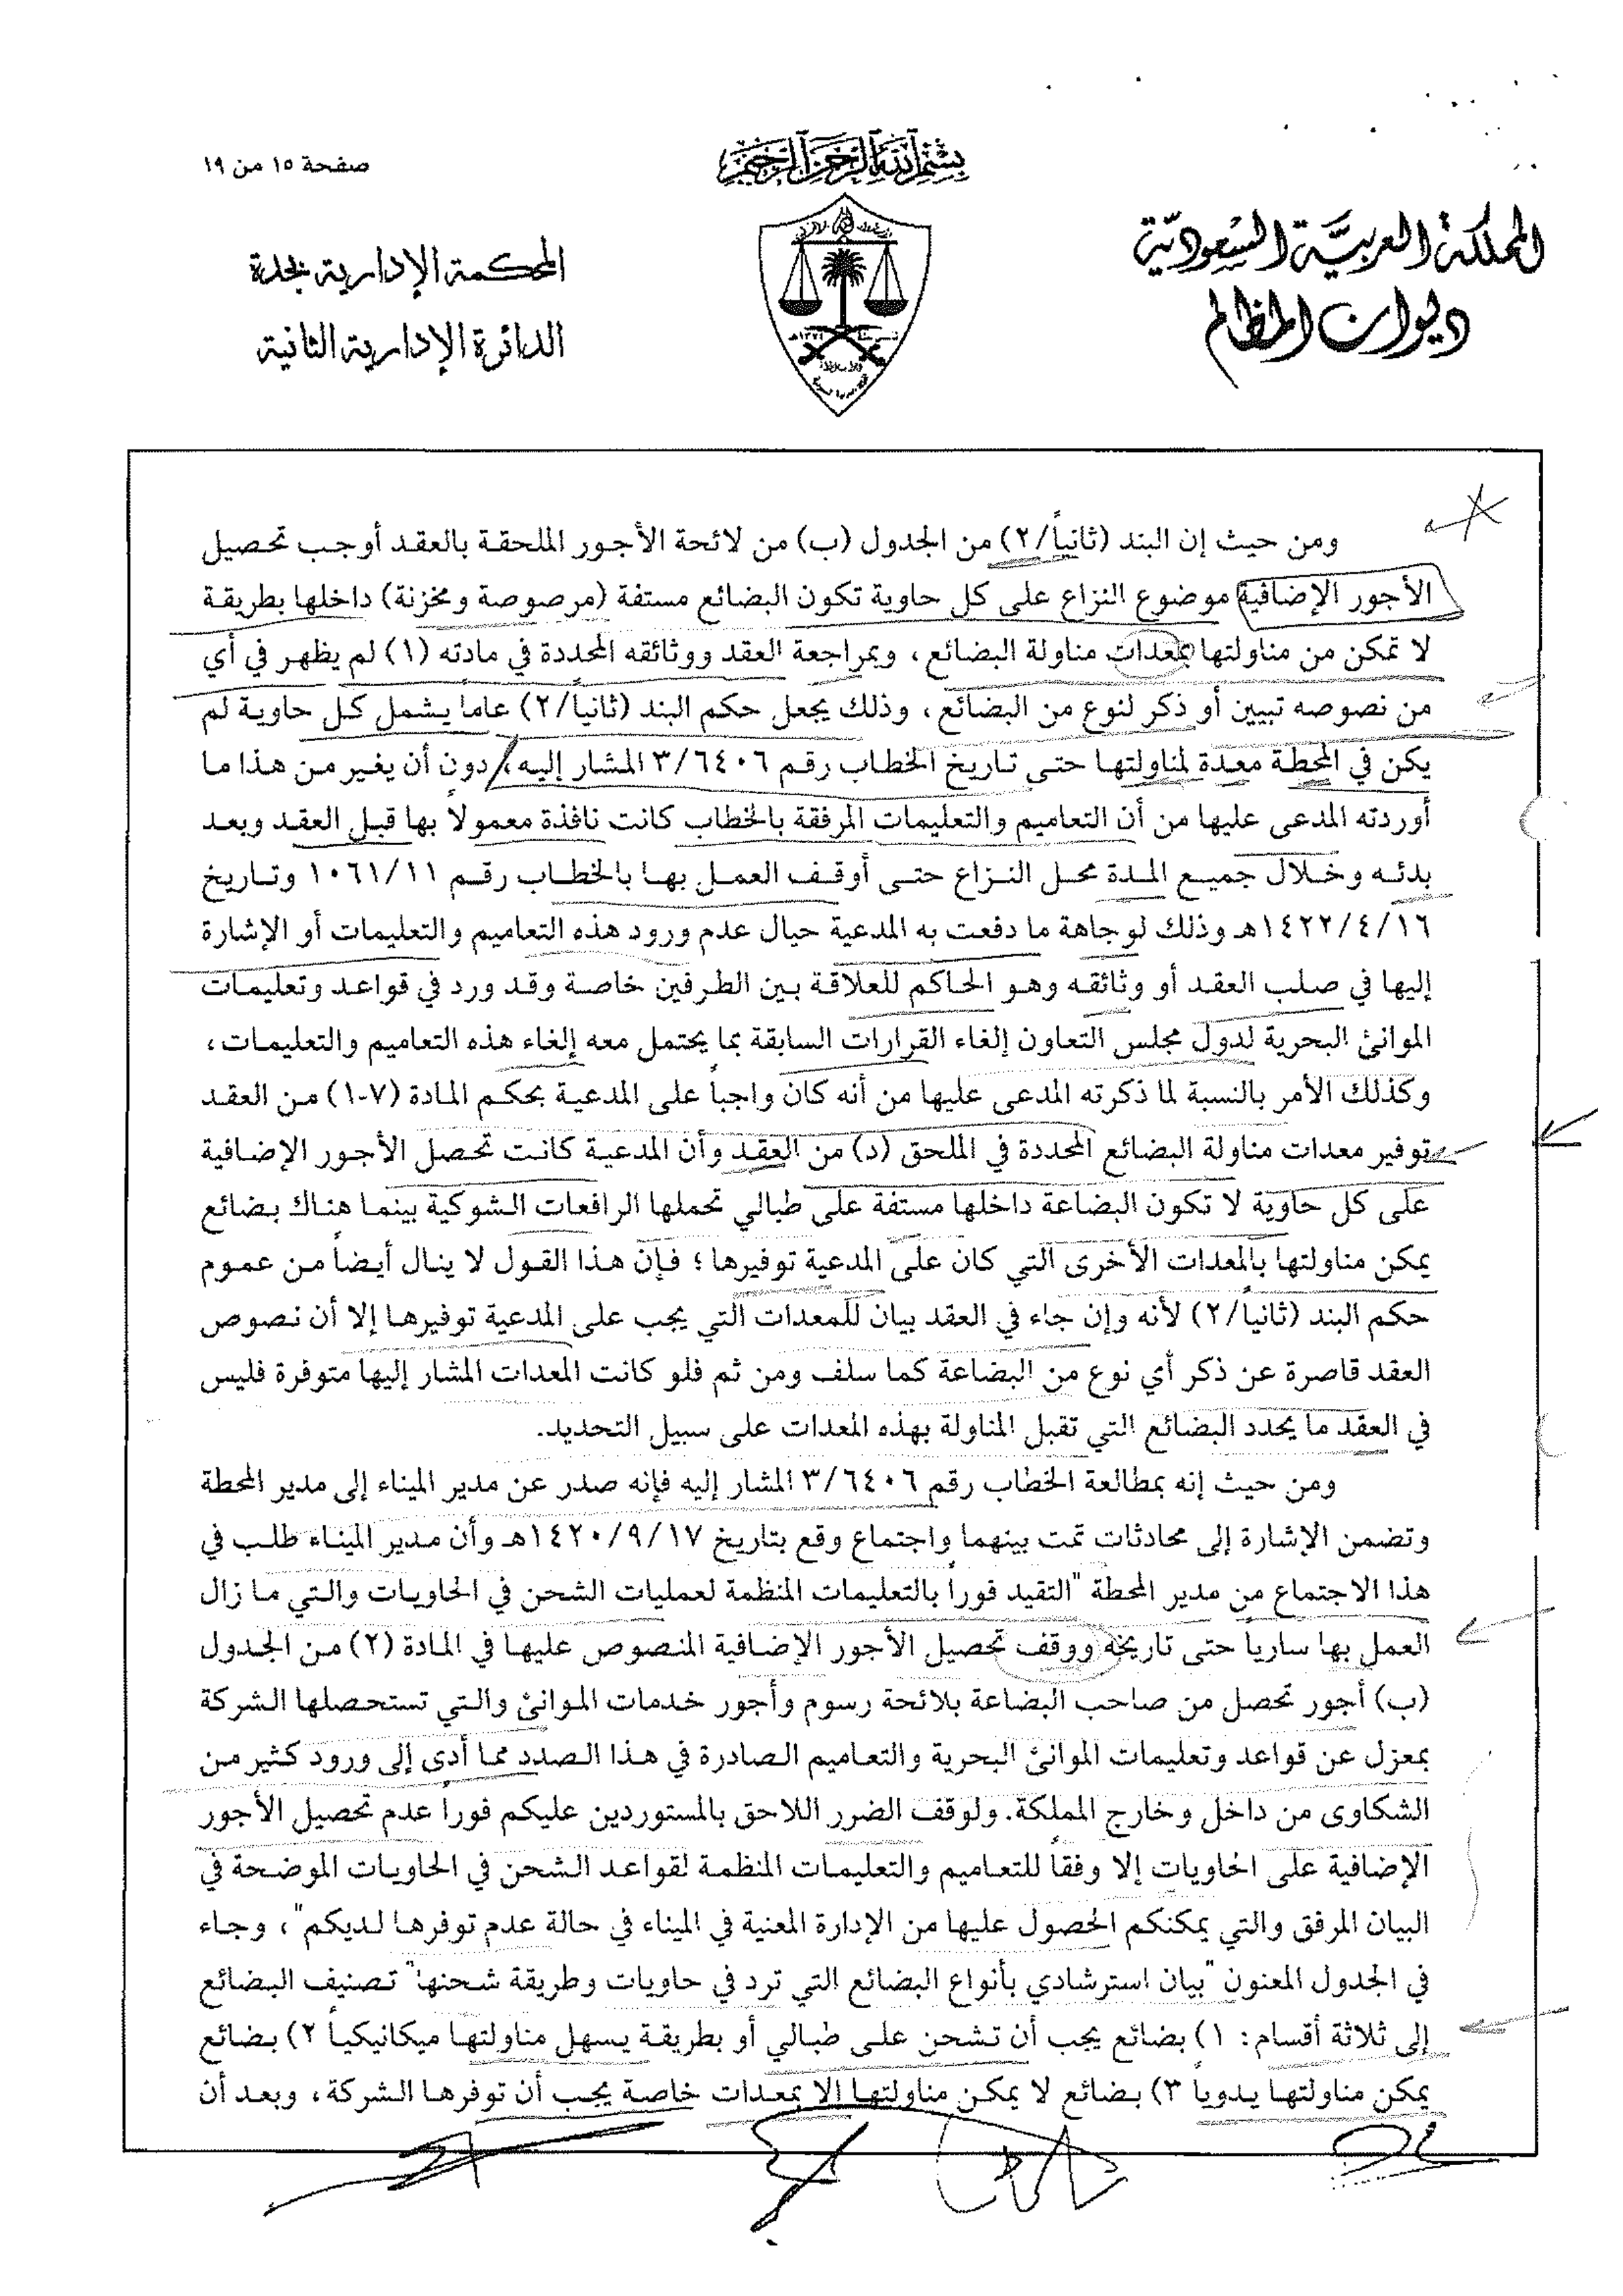 صفحة ١٥ من ١٩
بسم الله الرحمن الرحيم
المملكة العربية السعودية
ديوان المظالم
المحكمة الإدارية بجدة
الدائرة الإدارية الثانية
ومن حيث إن البند (ثانياً/٢) من الجدول (ب) من لائحة الأجور الملحقة بالعقد أوجب تحصيل
الأجور الإضافية موضوع النزاع على كل حاوية تكون البضائع مستفة (مرصوصة ومخزنة) داخلها بطريقة
لا تمكن من مناولتها بمعدات مناولة البضائع، وبمراجعة العقد ووثائقه المحددة في مادته (١) لم يظهر في أي
من نصوصه تبيين أو ذكر لنوع من البضائع، وذلك يجعل حكم البند (ثانياً/٢) عاماً يشمل كل حاوية لم
يكن في المحطة معدة لمناولتها حتى تاريخ الخطاب رقم ٣/٦٤٠٦ المشار إليه، دون أن يغير من هذا ما
أوردته المدعى عليها من أن التعاميم والتعليمات المرفقة بالخطاب كانت نافذة معمولاً بها قبل العقد وبعد
بدئه وخلال جميع المدة محل النزاع حتى أوقف العمل بها بالخطاب رقم ١٠٦١/١١ وتاريخ
١٤٢٢/٤/١٦هـ وذلك لوجاهة ما دفعت به المدعية حيال عدم ورود هذه التعاميم والتعليمات أو الإشارة
إليها في صلب العقد أو وثائقه وهو الحاكم للعلاقة بين الطرفين خاصة وقد ورد في قواعد وتعليمات
الموانئ البحرية لدول مجلس التعاون إلغاء القرارات السابقة بما يحتمل معه إلغاء هذه التعاميم والتعليمات،
وكذلك الأمر بالنسبة لما ذكرته المدعى عليها من أنه كان واجباً على المدعية بحكم المادة (٧-١) من العقد
توفير معدات مناولة البضائع المحددة في الملحق (د) من العقد وأن المدعية كانت تحصل الأجور الإضافية
على كل حاوية لا تكون البضاعة داخلها مستفة على طبالي تحملها الرافعات الشوكية بينما هناك بضائع
يمكن مناولتها بالمعدات الأخرى التي كان على المدعية توفيرها؛ فإن هذا القول لا ينال أيضاً من عموم
حكم البند (ثانياً/٢) لأنه وإن جاء في العقد بيان للمعدات التي يجب على المدعية توفيرها إلا أن نصوص
العقد قاصرة عن ذكر أي نوع من البضاعة كما سلف ومن ثم فلو كانت المعدات المشار إليها متوفرة فليس
في العقد ما يحدد البضائع التي تقبل المناولة بهذه المعدات على سبيل التحديد.
ومن حيث إنه بمطالعة الخطاب رقم ٣/٦٤٠٦ المشار إليه فإنه صدر عن مدير الميناء إلى مدير المحطة
وتضمن الإشارة إلى محادثات تمت بينهما واجتماع وقع بتاريخ ١٤٢٠/٩/١٧هـ وأن مدير الميناء طلب في
هذا الاجتماع من مدير المحطة "التقيد فوراً بالتعليمات المنظمة لعمليات الشحن في الحاويات والتي ما زال
العمل بها سارياً حتى تاريخه ووقف تحصيل الأجور الإضافية المنصوص عليها في المادة (٢) من الجدول
(ب) أجور تحصل من صاحب البضاعة بلائحة رسوم وأجور خدمات الموانئ والتي تستحصلها الشركة
بمعزل عن قواعد وتعليمات الموانئ البحرية والتعاميم الصادرة في هذا الصدد مما أدى إلى ورود كثير من
الشكاوى من داخل وخارج المملكة. ولوقف الضرر اللاحق بالمستوردين عليكم فوراً عدم تحصيل الأجور
الإضافية على الحاويات إلا وفقاً للتعاميم والتعليمات المنظمة لقواعد الشحن في الحاويات الموضحة في
البيان المرفق والتي يمكنكم الحصول عليها من الإدارة المعنية في الميناء في حالة عدم توفرها لديكم"، وجاء
في الجدول المعنون "بيان استرشادي بأنواع البضائع التي ترد في حاويات وطريقة شحنها" تصنيف البضائع
إلى ثلاثة أقسام: ١) بضائع يجب أن تشحن على طبالي أو بطريقة يسهل مناولتها ميكانيكياً ٢) بضائع
يمكن مناولتها يدوياً ٣) بضائع لا يمكن مناولتها إلا بمعدات خاصة يجب أن توفرها الشركة، وبعد أن